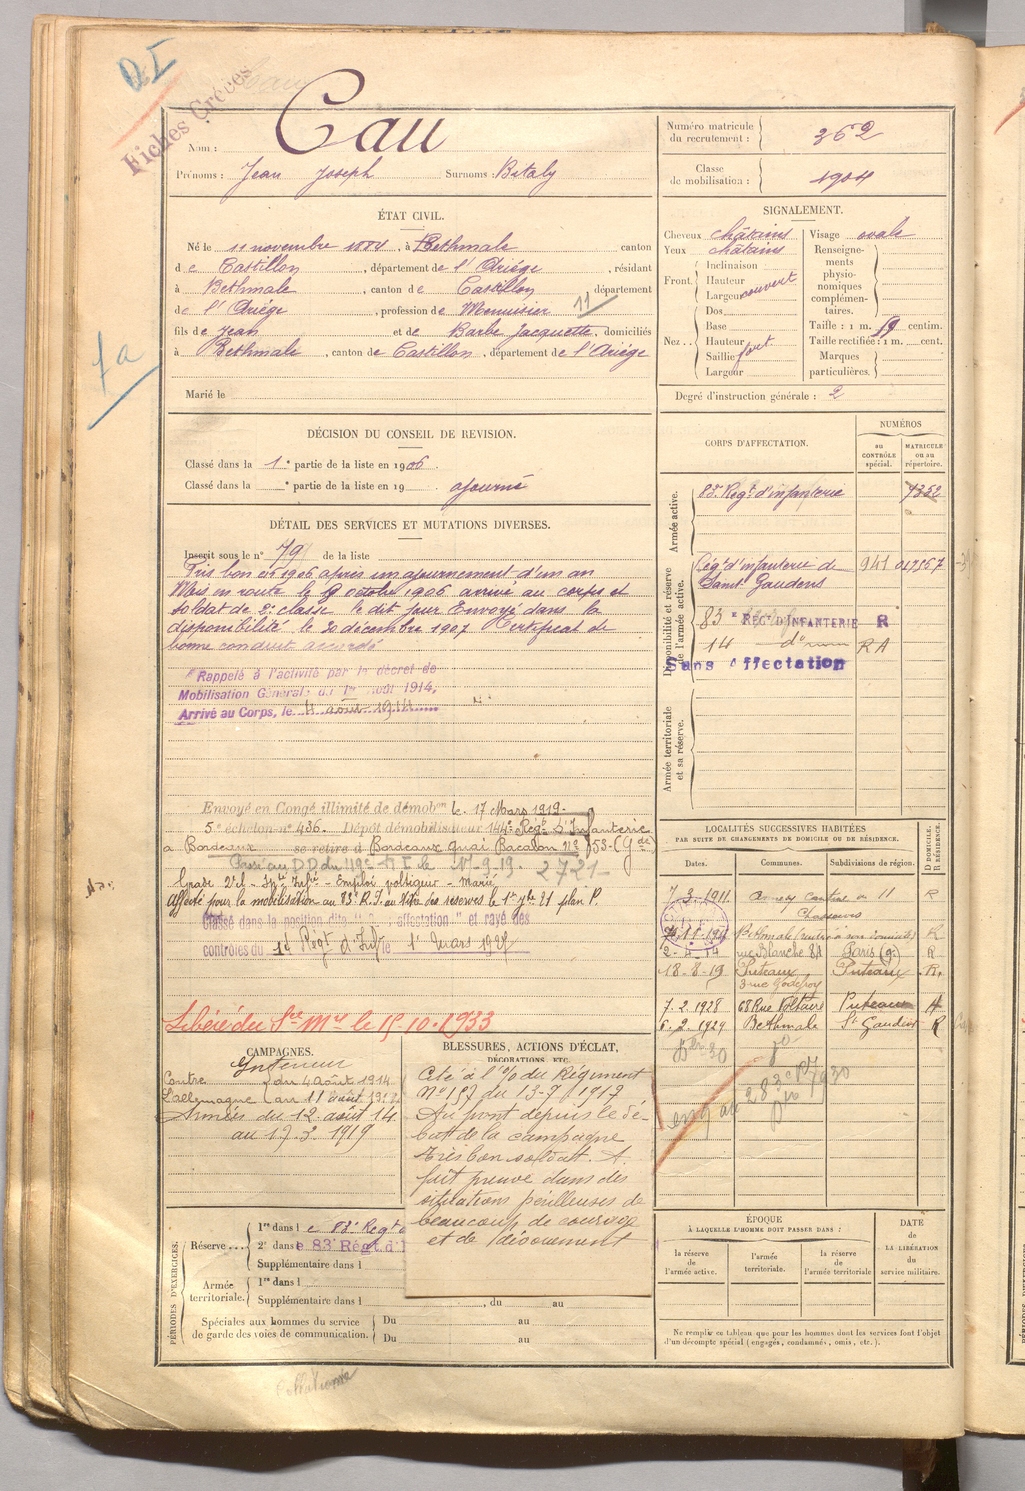 Fiches Créées
Nom : Cau
Prénoms : Jean Joseph Surnoms : Bitaly
Numéro matricule du recrutement : 362
Classe de mobilisation : 1904
ÉTAT CIVIL.
Né le 11 novembre 1884, à Bethmale canton
de Castillon, département de l'Ariége, résidant
à Bethmale, canton de Castillon, département
de l'Ariége, profession de Menuisier 11
fils de Jean et de Barbe Jacquette, domiciliés
à Bethmale, canton de Castillon, département de l'Ariége
Marié le
SIGNALEMENT.
Cheveux châtains
Yeux châtains
Front. Inclinaison
Hauteur
Largeur couvert
Nez .. Dos
Base
Hauteur
Saillie fort
Largeur
Visage ovale
Renseignements physionomiques complémentaires.
Taille : 1 m. 59 centim.
Taille rectifiée : 1 m. cent.
Marques particulières.
Degré d'instruction générale : 2
7a
DÉCISION DU CONSEIL DE REVISION.
Classé dans la 1e partie de la liste en 1906.
Classé dans la e partie de la liste en 19 . ajourné
DÉTAIL DES SERVICES ET MUTATIONS DIVERSES.
Inscrit sous le n° 79 de la liste
Pris bon en 1906 après un ajournement d'un an
Mis en route le octobre 1906 arrivé au corps et
soldat de 2e classe le dit jour Envoyé dans la
disponibilité le 20 décembre 1907 Certificat de
bonne conduite accordé
Rappelé à l'activité par le décret de
Mobilisation Générale du 1er Août 1914,
Arrivé au Corps, le 4 août 1914
Envoyé en Congé illimité de démobon le 17 Mars 1919.
5e échelon n° 436. Dépôt démobilisateur 144e Régt d'Infanterie
à Bordeaux se retire à Bordeaux Quai Bacalan N° 53
2721
Affecté pour la mobilisation au 83e R.I. au titre des reserves le 1er 21 plan P.
Classé dans la position dite "Sans affectation" et rayé des
contrôles du 14 Régt d'Infie le 1er Mars 1927
Libéré du Sce Mre le 15.10.1933
CORPS D'AFFECTATION.
NUMÉROS
au CONTRÔLE spécial.
MATRICULE ou au répertoire.
Armée active.
83e Regt d'infanterie 7352
Disponibilité et réserve de l'armée active.
Régt d'infanterie de Saint Gaudens 941
83e REGt D'INFANTERIE R
14 do RA
Sans Affectation
Armée territoriale et sa réserve.
LOCALITÉS SUCCESSIVES HABITÉES
PAR SUITE DE CHANGEMENTS DE DOMICILE OU DE RÉSIDENCE.
Dates. Communes. Subdivisions de région. D DOMICILE. R RÉSIDENCE.
7.3.1911 R
Chasseurs
Bethmale (rentré à son domicile) R
2-4-14 rue Blanche 81 Paris (9e) R
18-8-19 Puteaux, 3 rue Godefroy Puteaux R
7-2.1928 68 Rue Voltaire Puteaux R
6.2.1929 Bethmale St Gaudens R
CAMPAGNES.
Intérieur
Contre l'allemagne du 4 août 1914
au 11 août 191
Armées du 12 août 14
au 17.3.1919
BLESSURES, ACTIONS D'ÉCLAT,
DÉCORATIONS, ETC.
Cité à l'o/ du Régiment
N° 157 du 13-7-1917
Au front depuis le dé-
but de la campagne
très bon soldat. A
fait preuve dans des
situations périlleuses de
beaucoup de courage
et de dévouement
PÉRIODES D'EXERCICES.
Réserve.... 1re dans le 83e Régt
2e dans le 83e Régt d'I
Supplémentaire dans l
Armée territoriale. 1re dans l
Supplémentaire dans l , du au
Spéciales aux hommes du service de garde des voies de communication. Du au
Du au
ÉPOQUE
À LAQUELLE L'HOMME DOIT PASSER DANS :
la réserve de l'armée active.
l'armée territoriale.
la réserve de l'armée territoriale
DATE de LA LIBÉRATION du service militaire.
Ne remplir ce tableau que pour les hommes dont les services font l'objet
d'un décompte spécial (engagés, condamnés, omis, etc.).